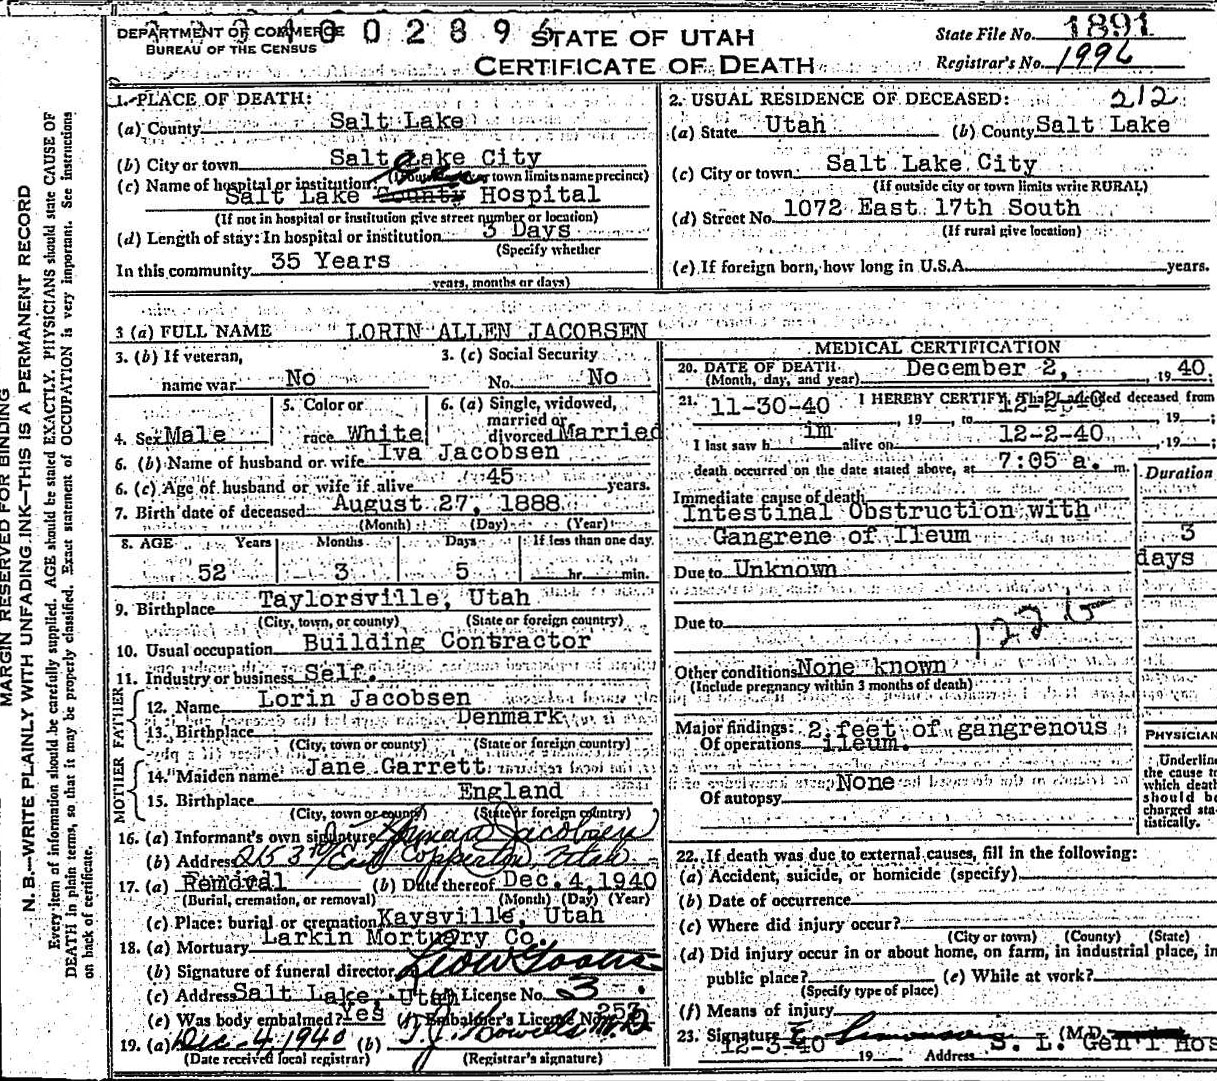 DEPARTMENT OF COMMERCE
BUREAU OF THE CENSUS
4 0 0 2 8 9
STATE OF UTAH
CERTIFICATE OF DEATH
State File No. 1891
Registrar's No. 1996
1. PLACE OF DEATH:
(a) County Salt Lake
(b) City or town Salt Lake City
(If outside city or town limits name precinct)
(c) Name of hospital or institution:
Salt Lake County Hospital
(If not in hospital or institution give street number or location)
(d) Length of stay: In hospital or institution 3 Days
(Specify whether
In this community 35 Years
years, months or days)
2. USUAL RESIDENCE OF DECEASED: 212
(a) State Utah (b) County Salt Lake
(c) City or town Salt Lake City
(If outside city or town limits write RURAL)
(d) Street No. 1072 East 17th South
(If rural give location)
(e) If foreign born, how long in U.S.A. years.
3 (a) FULL NAME LORIN ALLEN JACOBSEN
3. (b) If veteran,
name war No
3. (c) Social Security
No. No
4. Sex Male
5. Color or
race White
6. (a) Single, widowed,
married or
divorced Married
6. (b) Name of husband or wife Iva Jacobsen
6. (c) Age of husband or wife if alive 45 years.
7. Birth date of deceased August 27, 1888
(Month) (Day) (Year)
8. AGE Years Months Days If less than one day
52 3 5 hr. min.
9. Birthplace Taylorsville, Utah
(City, town, or county) (State or foreign country)
10. Usual occupation Building Contractor
11. Industry or business Self.
FATHER
12. Name Lorin Jacobsen
13. Birthplace Denmark
(City, town or county) (State or foreign country)
MOTHER
14. Maiden name Jane Garrett
15. Birthplace England
(City, town or county) (State or foreign country)
16. (a) Informant's own signature Jacobsen
(b) Address Copperton, Utah
17. (a) Removal (b) Date thereof Dec. 4, 1940
(Burial, cremation, or removal) (Month) (Day) (Year)
(c) Place: burial or cremation Kaysville, Utah
18. (a) Mortuary Larkin Mortuary Co.
(b) Signature of funeral director
(c) Address Salt Lake, Utah License No. 3
(e) Was body embalmed? Yes (f) Embalmer's License No. 257
19. (a) Dec-4-1940 (b) M.D.
(Date received local registrar) (Registrar's signature)
MEDICAL CERTIFICATION
20. DATE OF DEATH
(Month, day, and year) December 2, 19 40.
21. I HEREBY CERTIFY, That I attended deceased from
11-30-40, 19 , to 12-2-40, 19 ;
I last saw h im alive on 12-2-40, 19 ;
death occurred on the date stated above, at 7:05 a. m.
Duration
Immediate cause of death
Intestinal Obstruction with
Gangrene of Ileum 3
days
Due to Unknown
Due to
Other conditions None known
(Include pregnancy within 3 months of death)
Major findings: 2 feet of gangrenous
Of operations ileum.
None
Of autopsy
PHYSICIAN
Underline
the cause to
which death
should be
charged sta-
tistically.
22. If death was due to external causes, fill in the following:
(a) Accident, suicide, or homicide (specify)
(b) Date of occurrence
(c) Where did injury occur?
(City or town) (County) (State)
(d) Did injury occur in or about home, on farm, in industrial place, in
public place? (e) While at work?
(Specify type of place)
(f) Means of injury
23. Signature E (M.D.
12-3-40 19 Address S. L. Gen'l Hos
MARGIN RESERVED FOR BINDING
N. B.—WRITE PLAINLY WITH UNFADING INK—THIS IS A PERMANENT RECORD
Every item of information should be carefully supplied. AGE should be stated EXACTLY. PHYSICIANS should state CAUSE OF
DEATH in plain terms, so that it may be properly classified. Exact statement of OCCUPATION is very important. See instructions
on back of certificate.